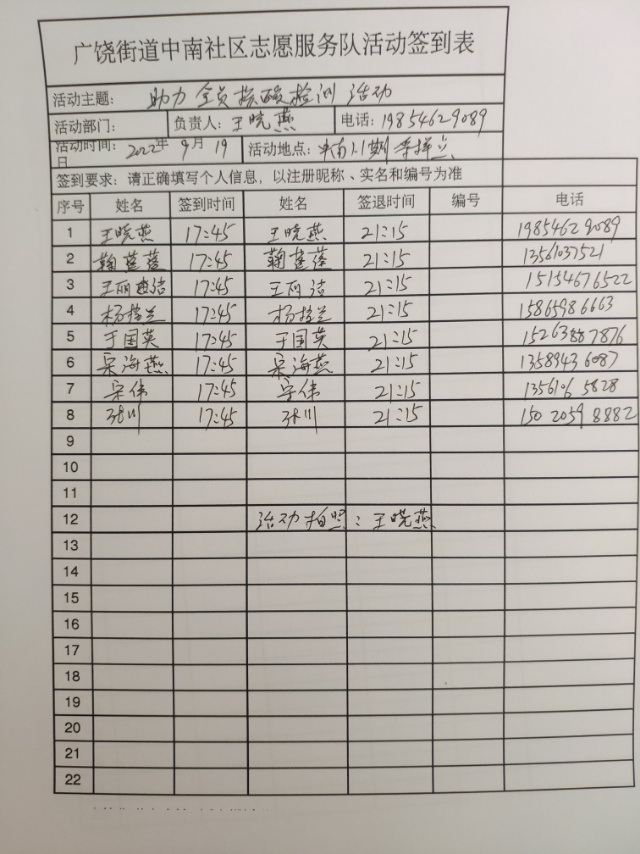 广饶街道中南社区志愿服务队活动签到表
活动主题： 助力全员核酸检测活动
活动部门： 负责人：王晓燕 电话：19854629089
活动时间：2022年9月19日 活动地点：中南
签到要求：请正确填写个人信息，以注册昵称、实名和编号为准
序号 姓名 签到时间 姓名 签退时间 编号 电话
1 王晓燕 17:45 王晓燕 21:15 19854629089
2 鞠莲莲 17:45 鞠莲莲 21:15 13561037521
3 王丽洁 17:45 王丽洁 21:15 15154676522
4 杨拴兰 17:45 杨拴兰 21:15 15865986663
5 于国英 17:45 于国英 21:15 15263887876
6 宋海燕 17:45 宋海燕 21:15 13589436087
7 宋伟 17:45 宋伟 21:15 1356165828
8 张川 17:45 张川 21:15 15020598882
9
10
11
12 活动拍照：王晓燕
13
14
15
16
17
18
19
20
21
22